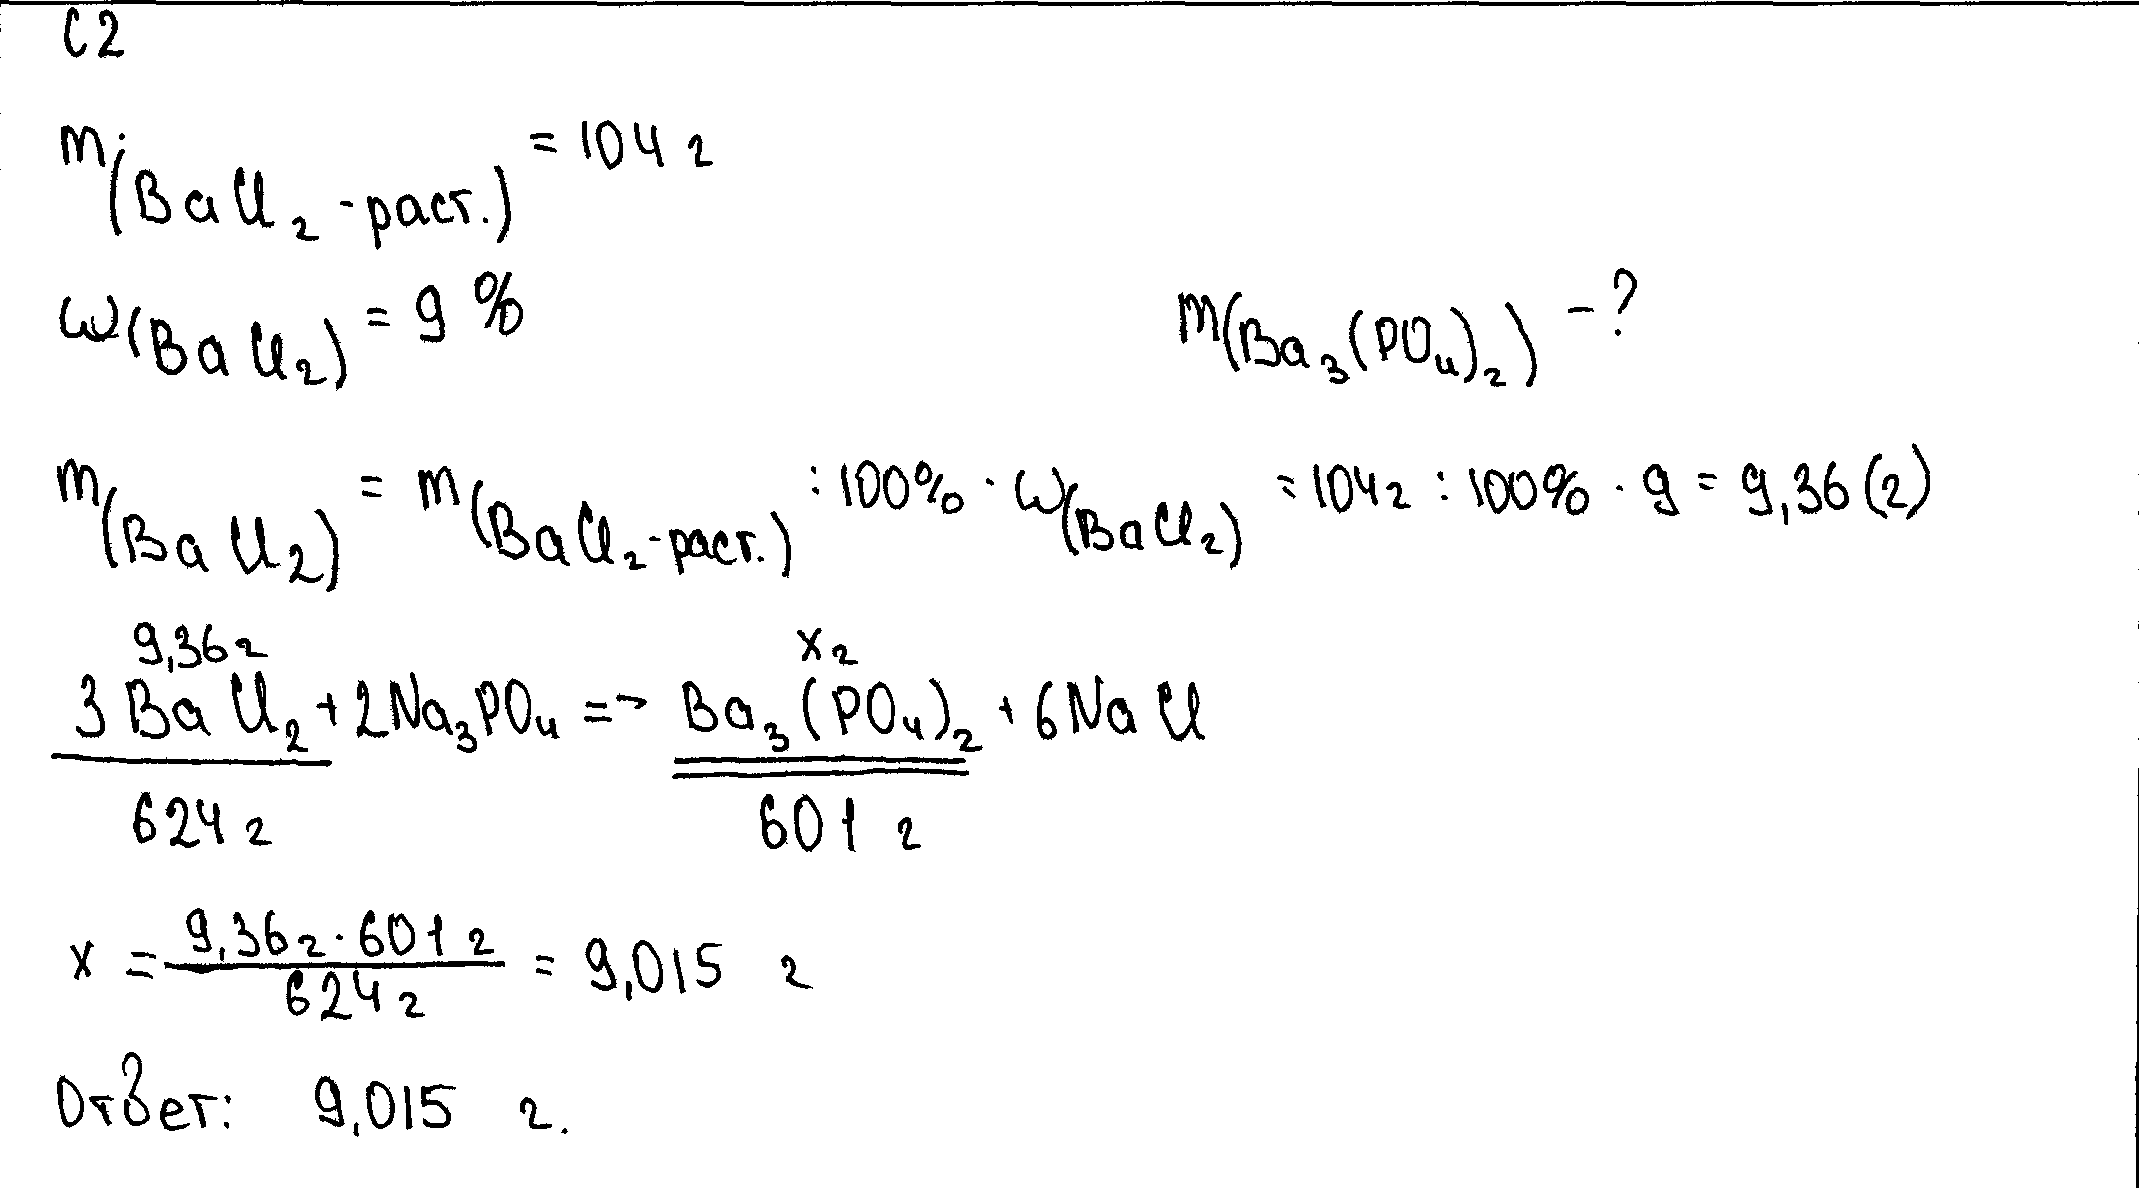 С2
m(BaCl₂-раст.) = 104 г
ω(BaCl₂) = 9 %
m(Ba₃(PO₄)₂) - ?
m(BaCl₂) = m(BaCl₂-раст.) : 100% · ω(BaCl₂) = 104 г : 100% · 9 = 9,36 (г)
9,36 г x г
3BaCl₂ + 2Na₃PO₄ => Ba₃(PO₄)₂ + 6NaCl
624 г 601 г
x = 9,36 г · 601 г / 624 г = 9,015 г
Ответ: 9,015 г.